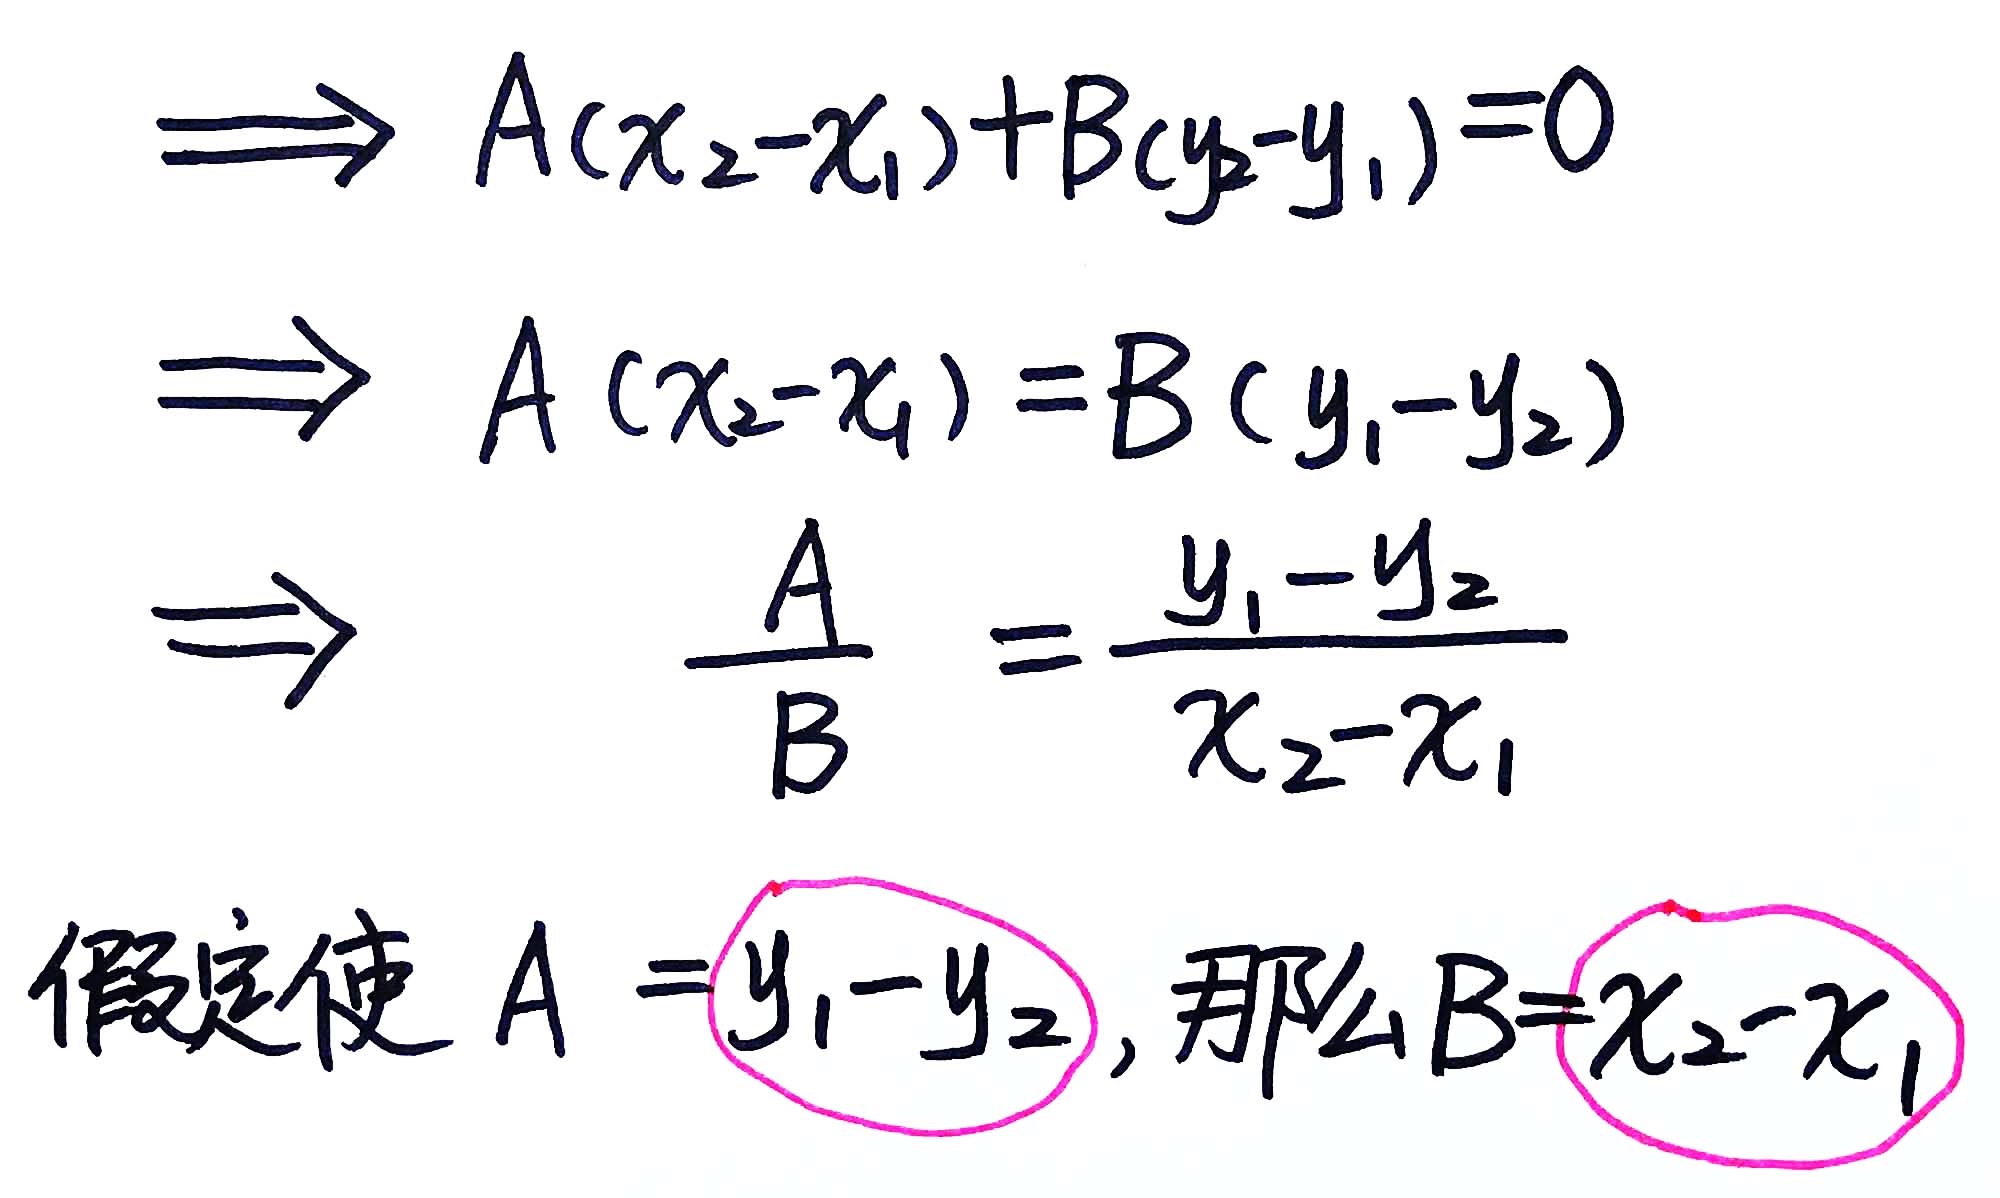 ⟹ A(x₂-x₁)+B(y₂-y₁)=0
⟹ A(x₂-x₁)=B(y₁-y₂)
⟹ A/B = (y₁-y₂)/(x₂-x₁)
假定使 A=y₁-y₂, 那么B=x₂-x₁